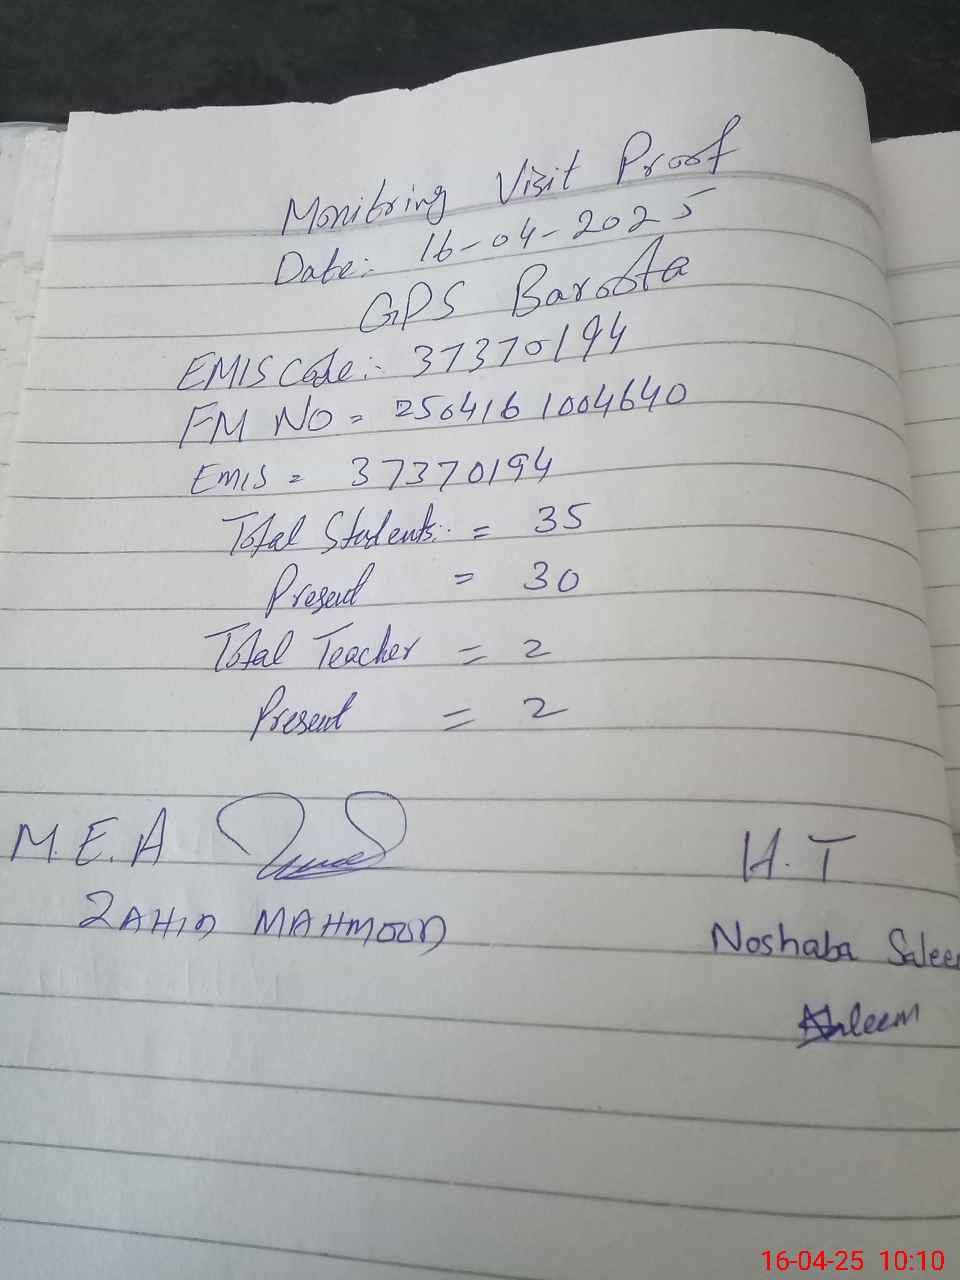 Monitring Visit Proof
Date:- 16-04-2025
GPS Baroota
EMIS Code:- 37370194
FM NO = 250416 1004640
Emis = 37370194
Total Students:- = 35
Present = 30
Total Teacher = 2
Present = 2
M.E.A
H.T
ZAHID MAHMOOD
Noshaba Saleem
16-04-25 10:10